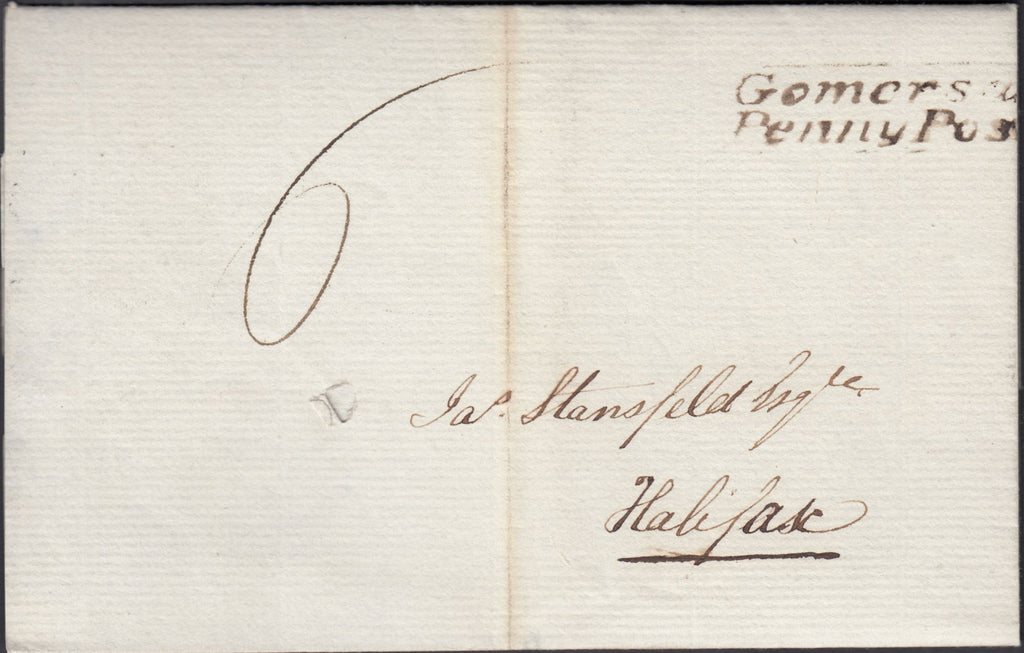 Gomersa
Penny Pos
6
Jas. Stansfeld Esqre
Halifax